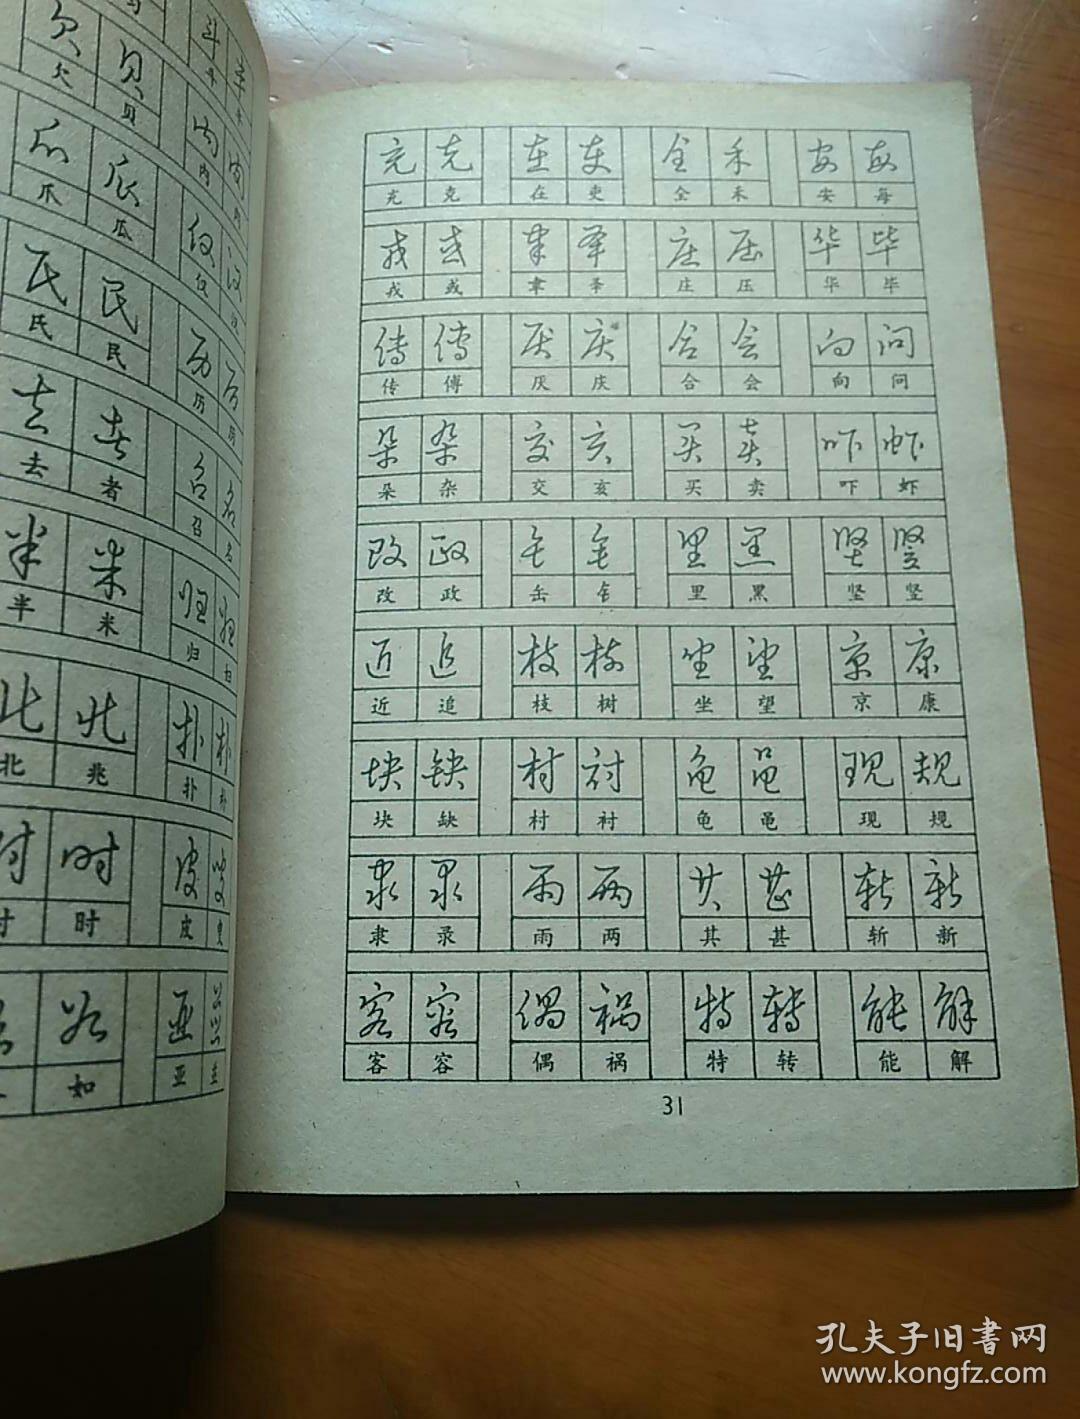 欠 贝 斗
爪 瓜 内
氏 民 历
去 者 召 名
半 米 归 扫
北 兆 扑 朴
时 皮
如 亚
充 克 在 吏 全 禾 安 每
戎 或 聿 圣 庄 压 华 毕
传 傅 厌 庆 合 会 向 问
朵 杂 交 亥 买 卖 吓 虾
改 政 缶 里 黑 坚 竖
近 追 枝 树 坐 望 京 康
块 缺 村 衬 龟 黾 现 规
隶 录 雨 两 其 甚 斩 新
客 容 偶 祸 特 转 能 解
31
孔夫子旧书网
www.kongfz.com